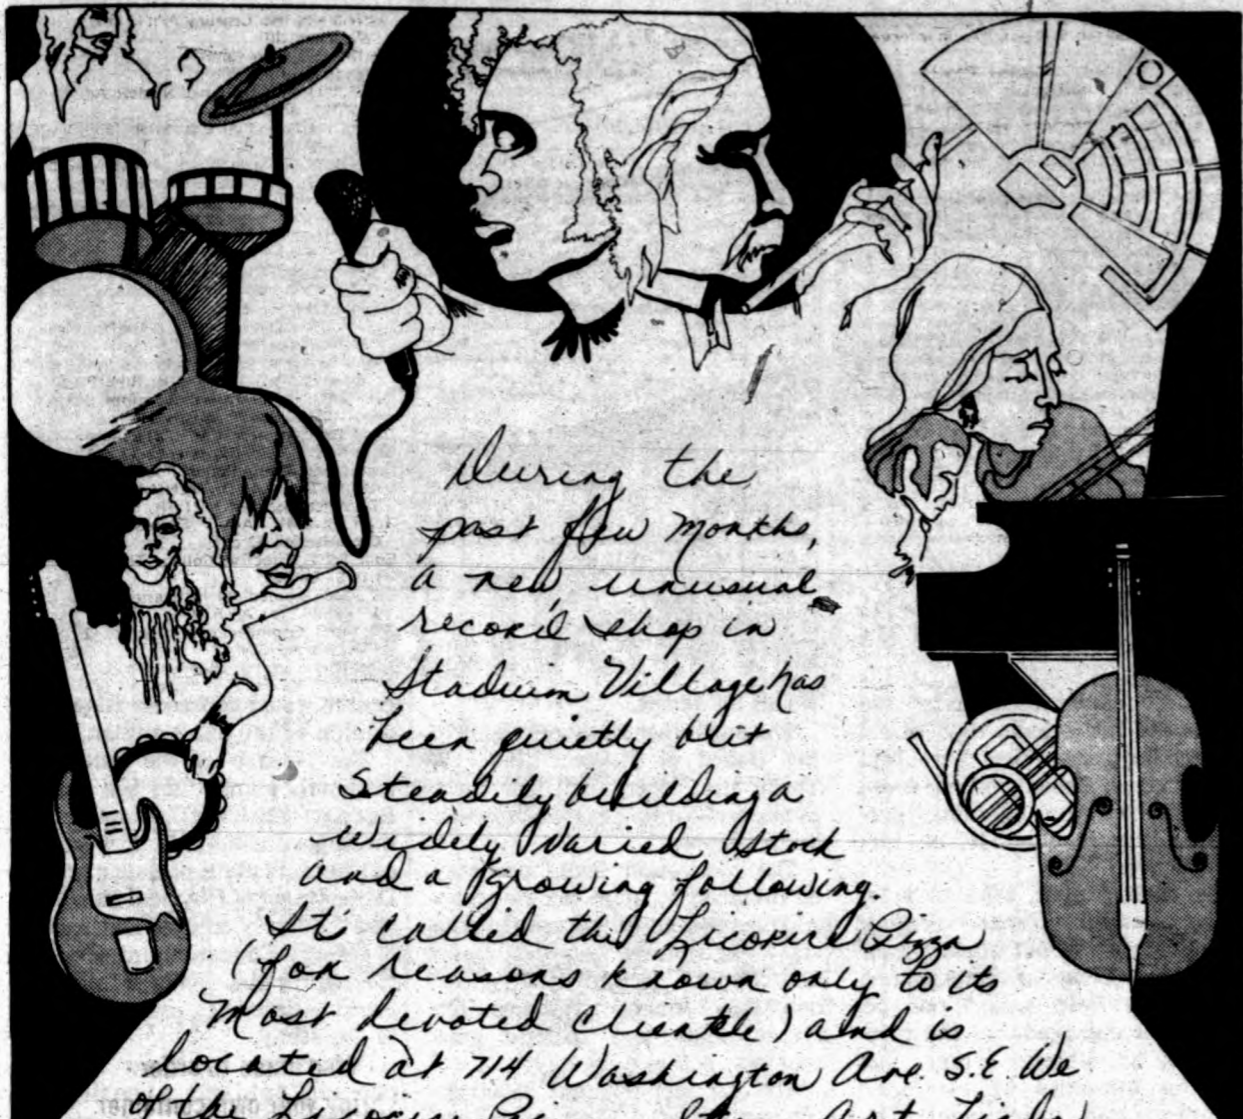 During the
past few months,
a new, unusual
record shop in
Stadium Village has
been quietly but
steadily building a
widely varied stock
and a growing following.
It's called the Licorice Pizza
(for reasons known only to its
most devoted clientele) and is
located at 714 Washington Ave. S.E. We
of the Licorice